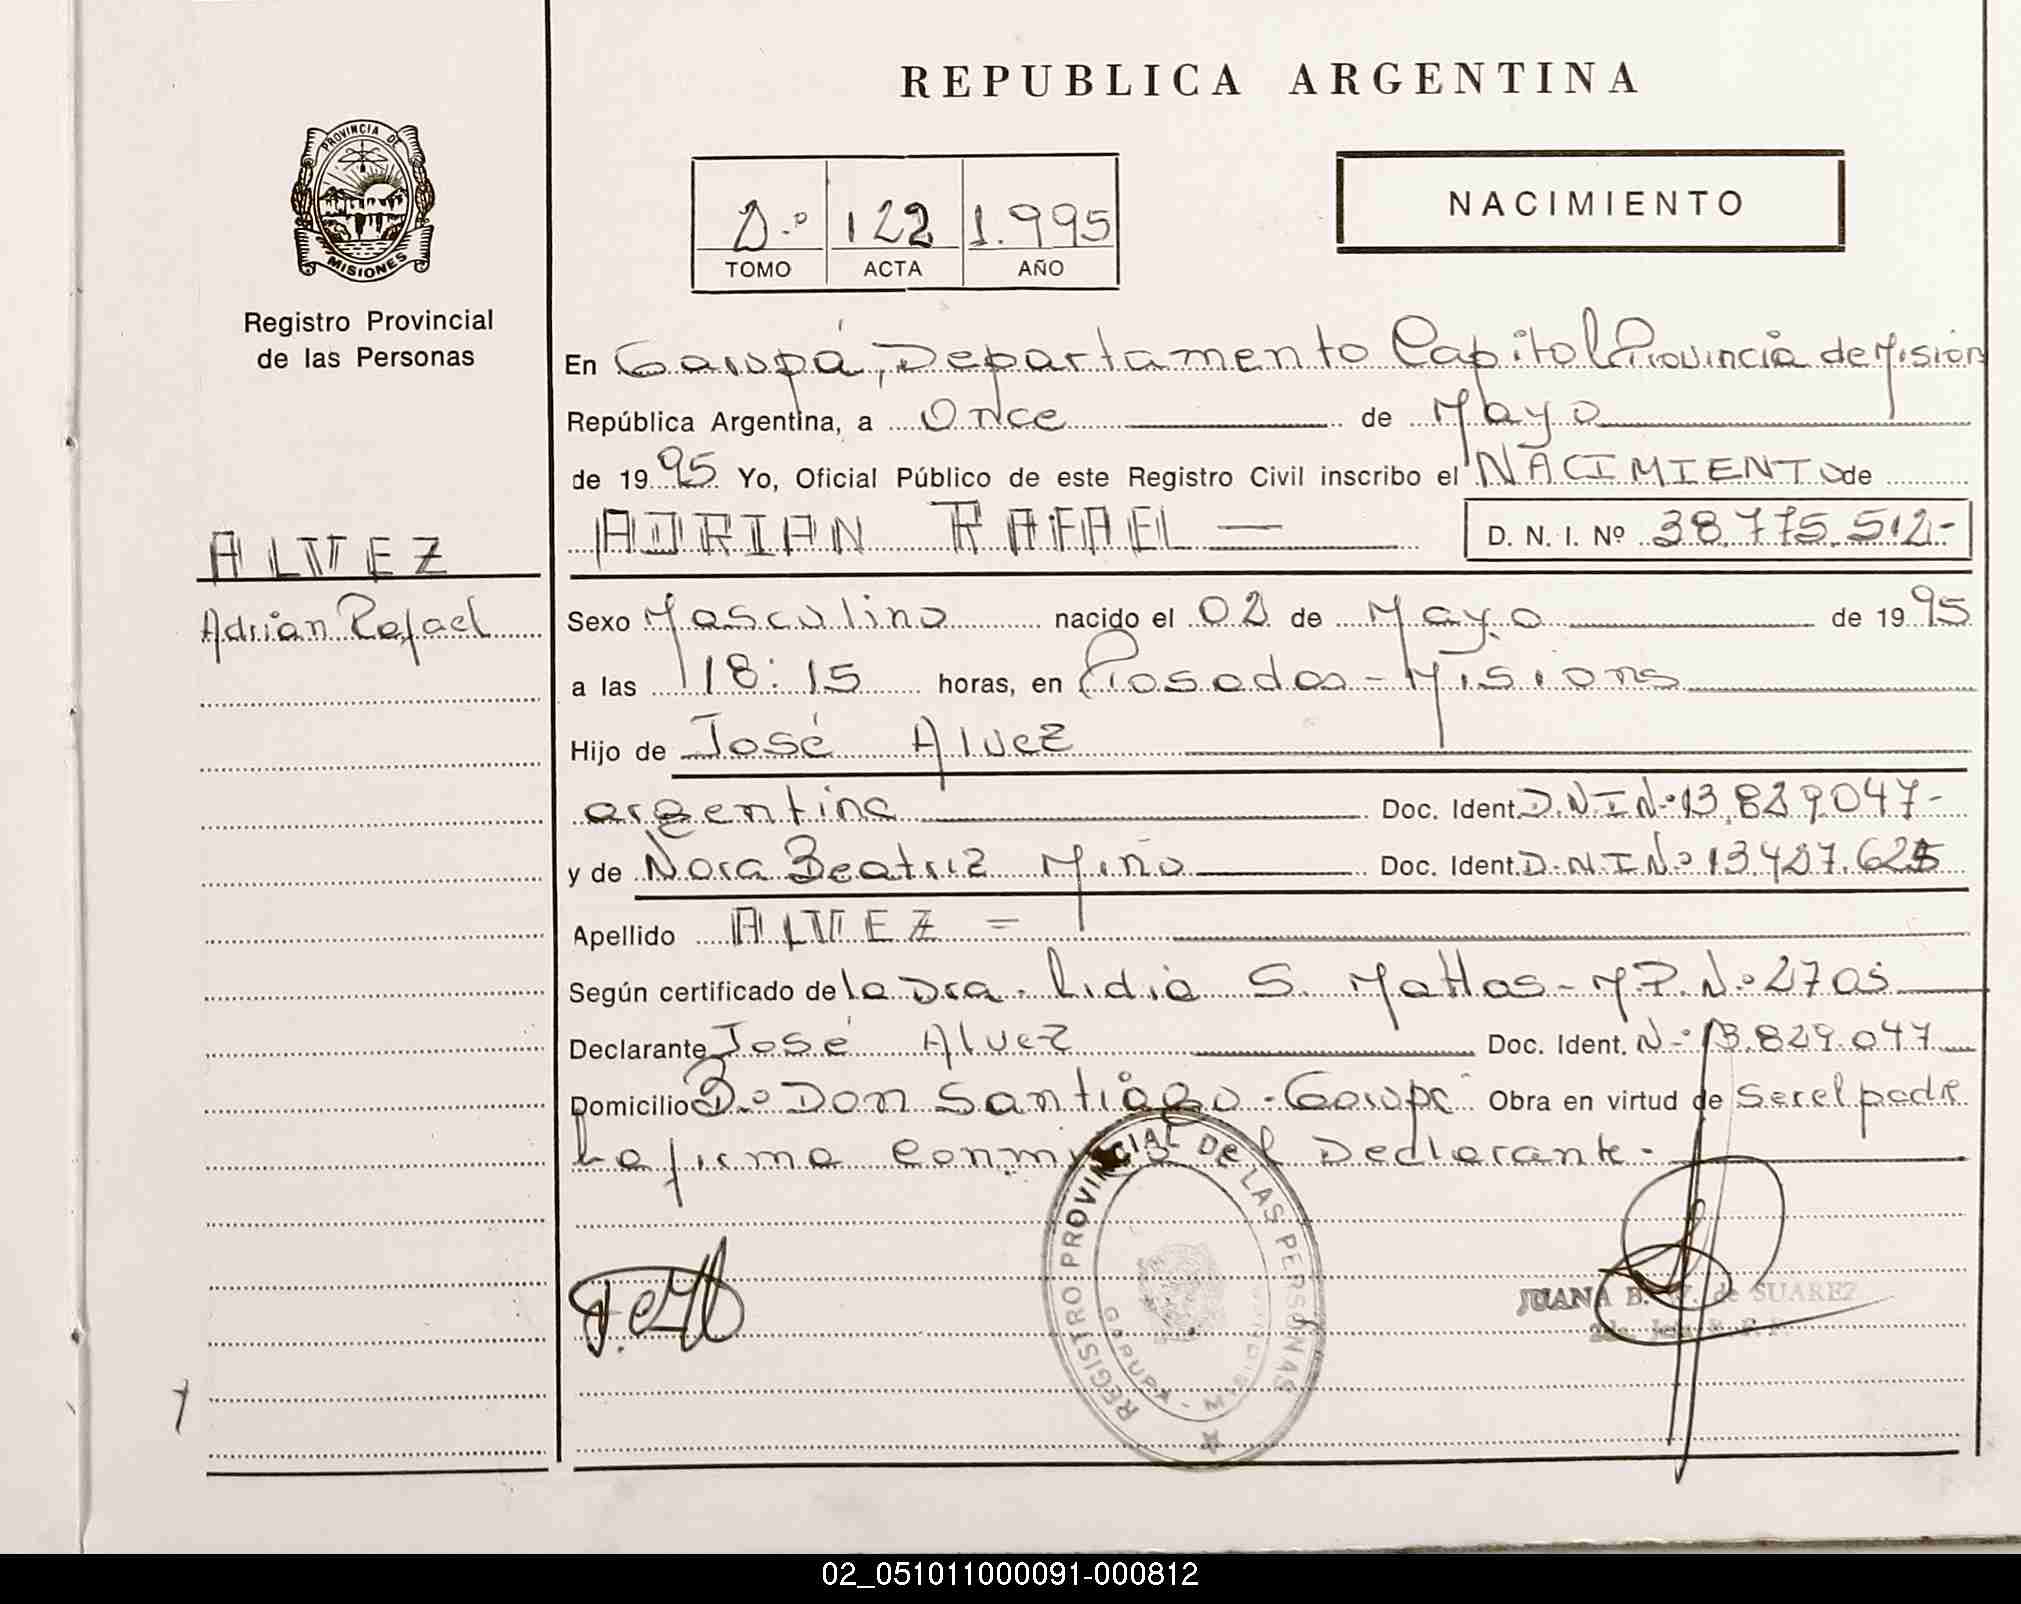 REPUBLICA ARGENTINA
PROVINCIA DE
MISIONES
Registro Provincial
de las Personas
122 1.995
TOMO ACTA AÑO
NACIMIENTO
En Garupá, Departamento Capital Provincia de Mision
República Argentina, a Once de Mayo
de 1995 Yo, Oficial Público de este Registro Civil inscribo el NACIMIENTO de
ADRIAN RAFAEL — D. N. I. Nº 38.775.512-
ALVEZ
Adrian Rafael
Sexo Masculino nacido el 02 de Mayo de 1995
a las 18:15 horas, en Posadas - Misiones
Hijo de José Alvez
argentina Doc. Ident. D.N.I Nº 13.829.047-
y de Nora Beatriz Miño Doc. Ident. D.N.I Nº 13.427.625
Apellido ALVEZ =
Según certificado de la Dra. Lidia S. Mattos - M.P. Nº 2705
Declarante José Alvez Doc. Ident. Nº 13.829.047
Domicilio Bº Don Santiago - Garupá Obra en virtud de ser el padre
La firma conmigo del Declarante.
REGISTRO PROVINCIAL DE LAS PERSONAS
GARUPA - MISIONES
JUANA B. de SUAREZ
02_051011000091-000812